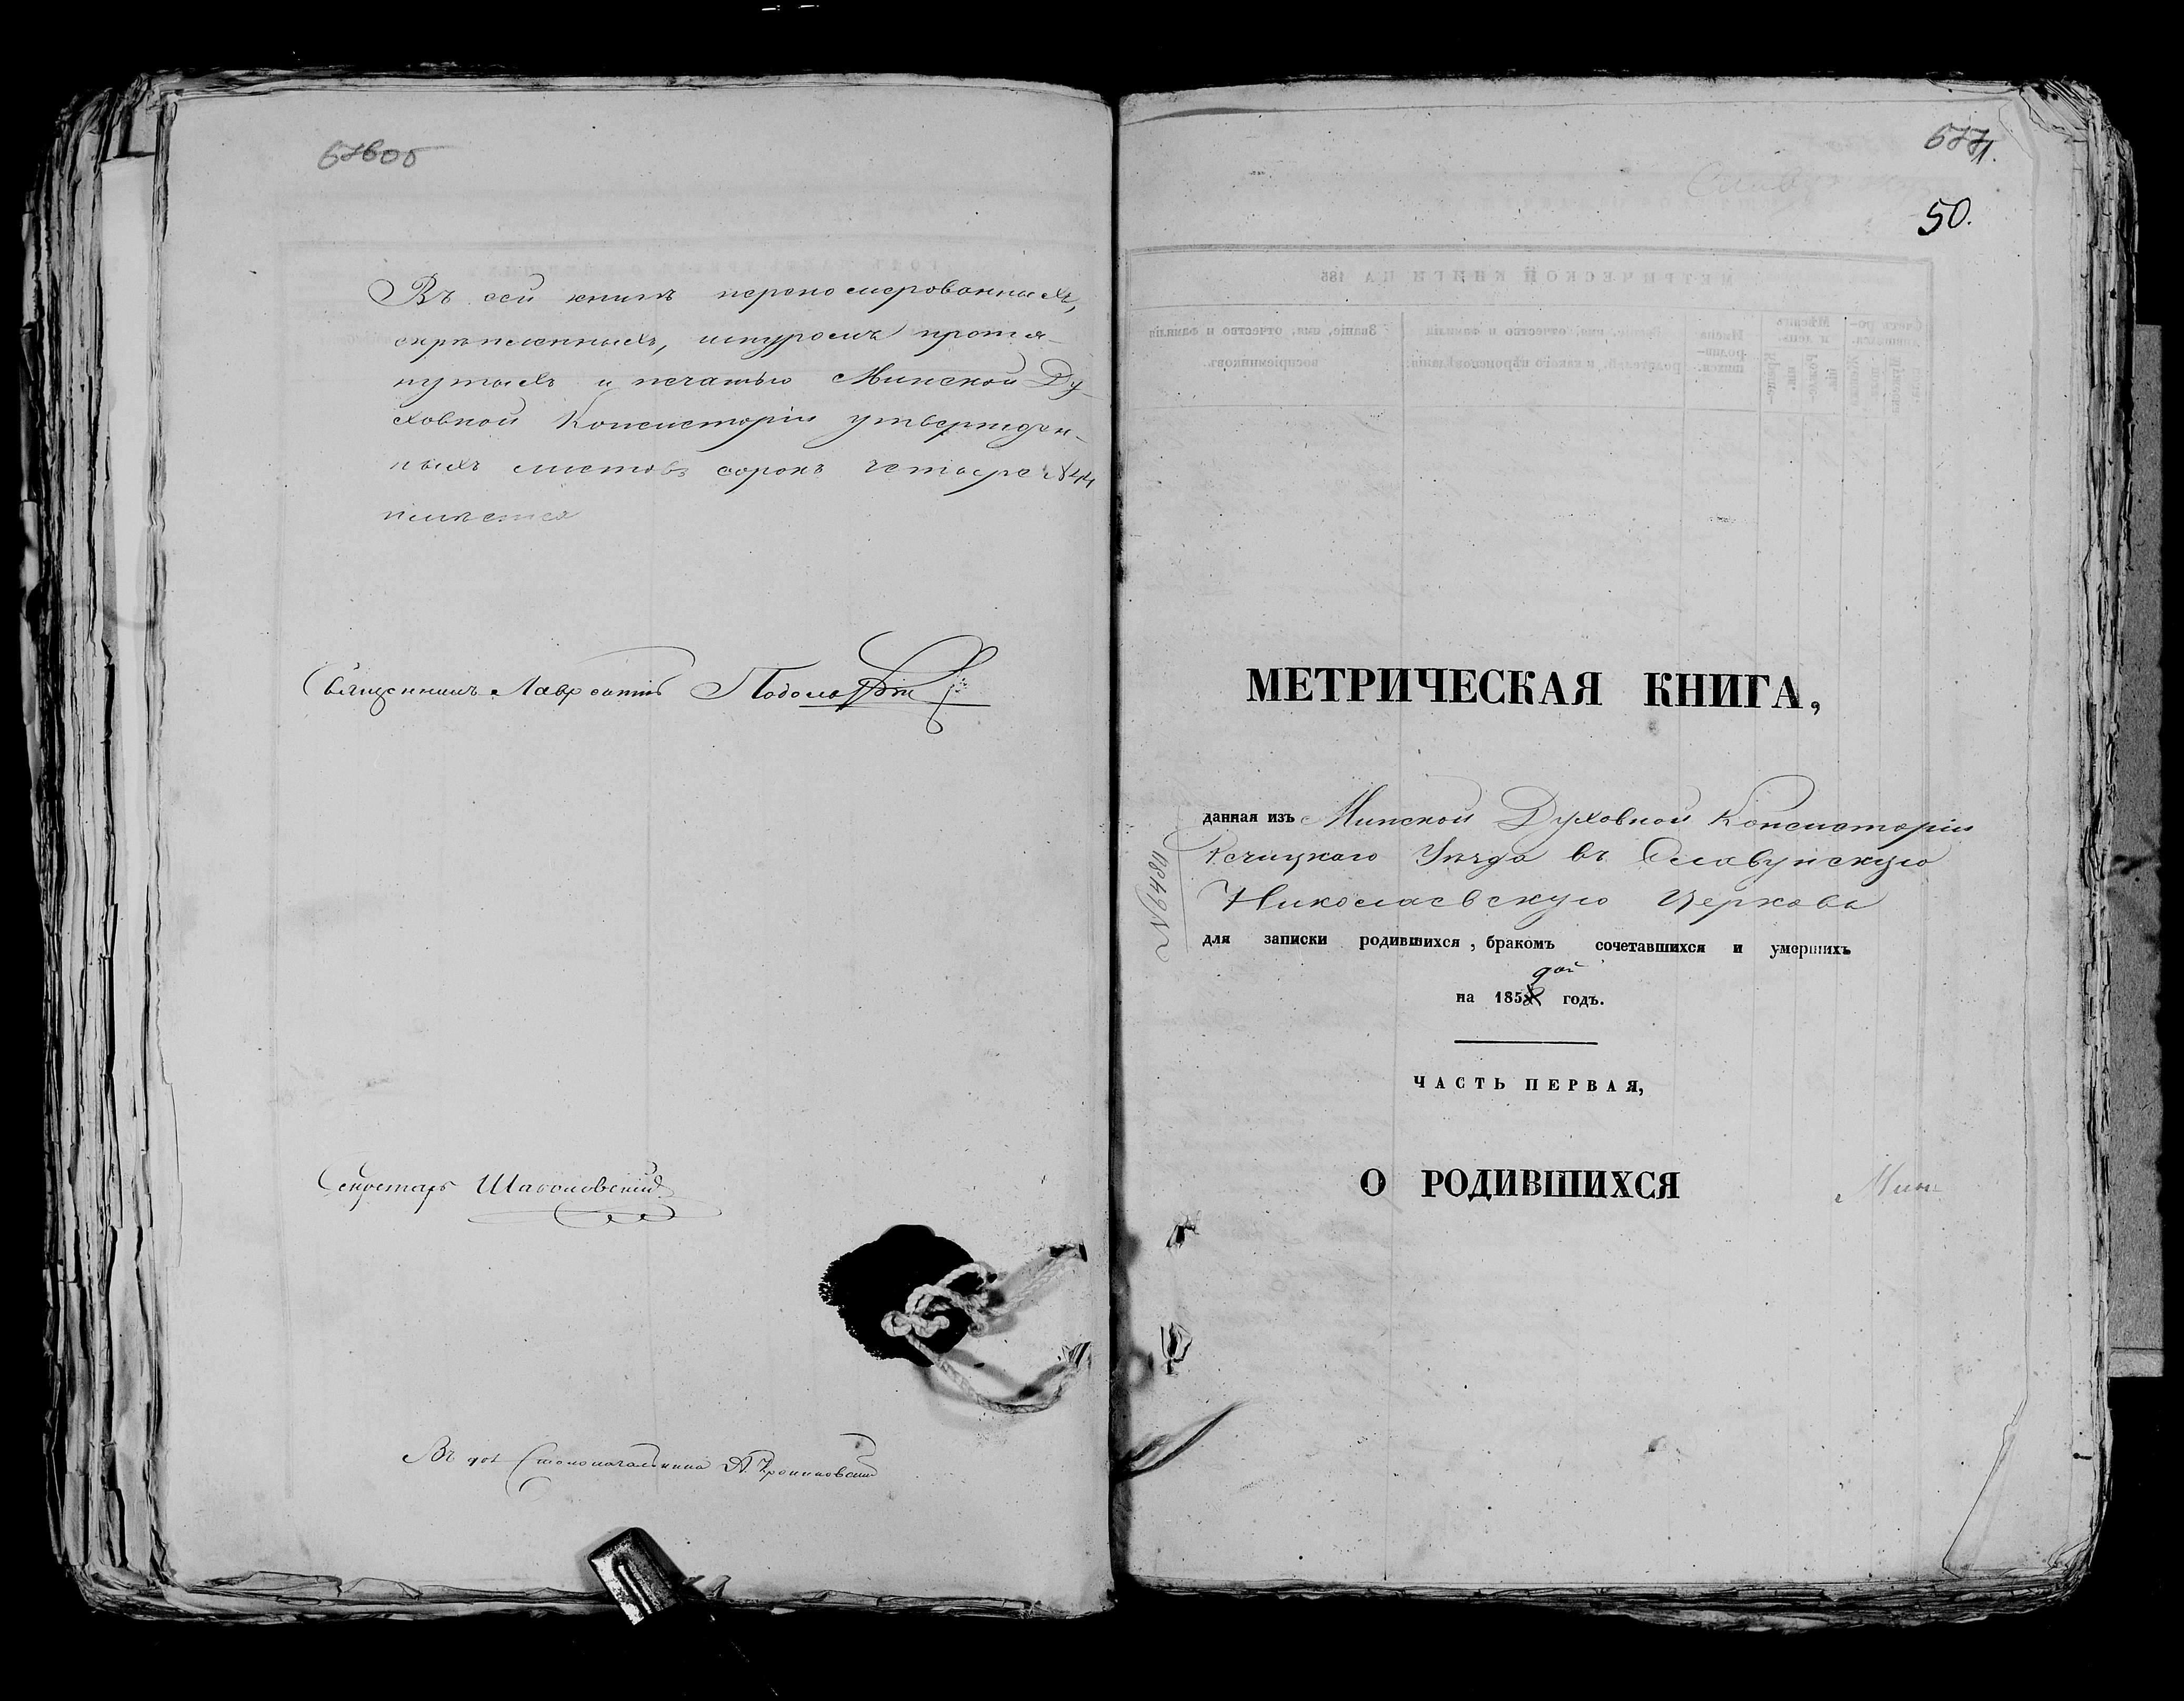 676об
Въ сей книгѣ перенумерованныхъ,
скрѣпленныхъ, шнуромъ протя-
нутыхъ и печатью Минской Ду-
ховной Консисторіи утвержден-
ныхъ листовъ сорокъ четыре №44
имѣется
Священникъ Лаврентій
Секретарь
Въ дол Столоначальника
677
1.
50.
МЕТРИЧЕСКАЯ КНИГА,
данная изъ Минской Духовной Консисторіи
Речицкаго Уѣзда въ
Николаевскую Церковь
№6484
для записки родившихся, бракомъ сочетавшихся и умершихъ
на 185 годъ.
ЧАСТЬ ПЕРВАЯ,
О РОДИВШИХСЯ
Мин